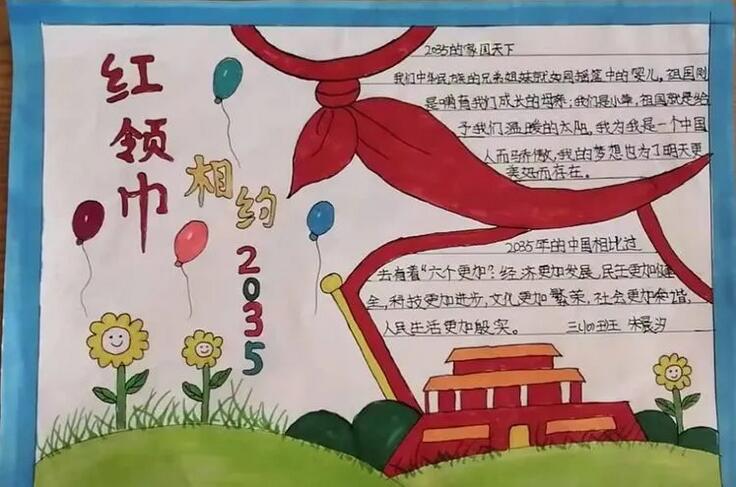 红领巾
相约
2035
2035的家国天下
我们中华民族的兄弟姐妹就如同摇篮中的婴儿，祖国则
是哺育我们成长的母亲；我们是小草，祖国就是给
予我们温暖的太阳，我为我是一个中国
人而骄傲，我的梦想也为了明天更
美好而存在。
2035年的中国相比过
去有着“六个更加”：经济更加发展、民主更加健
全，科技更加进步，文化更加繁荣，社会更加和谐，
人民生活更加殷实。 三（4）班 朱晨汐